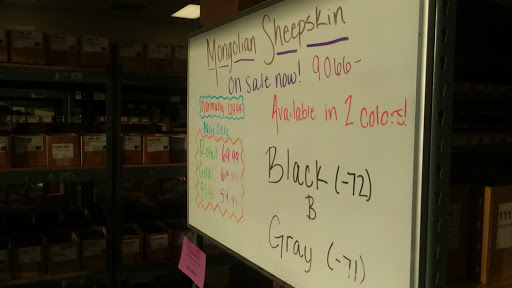 Mongolian Sheepskin
on sale now! 9066-
Normally 129.99
Now Only
Retail 69.99
Gold
Elite 59.99
Available in 2 colors!
Black (-72)
B
Gray (-71)